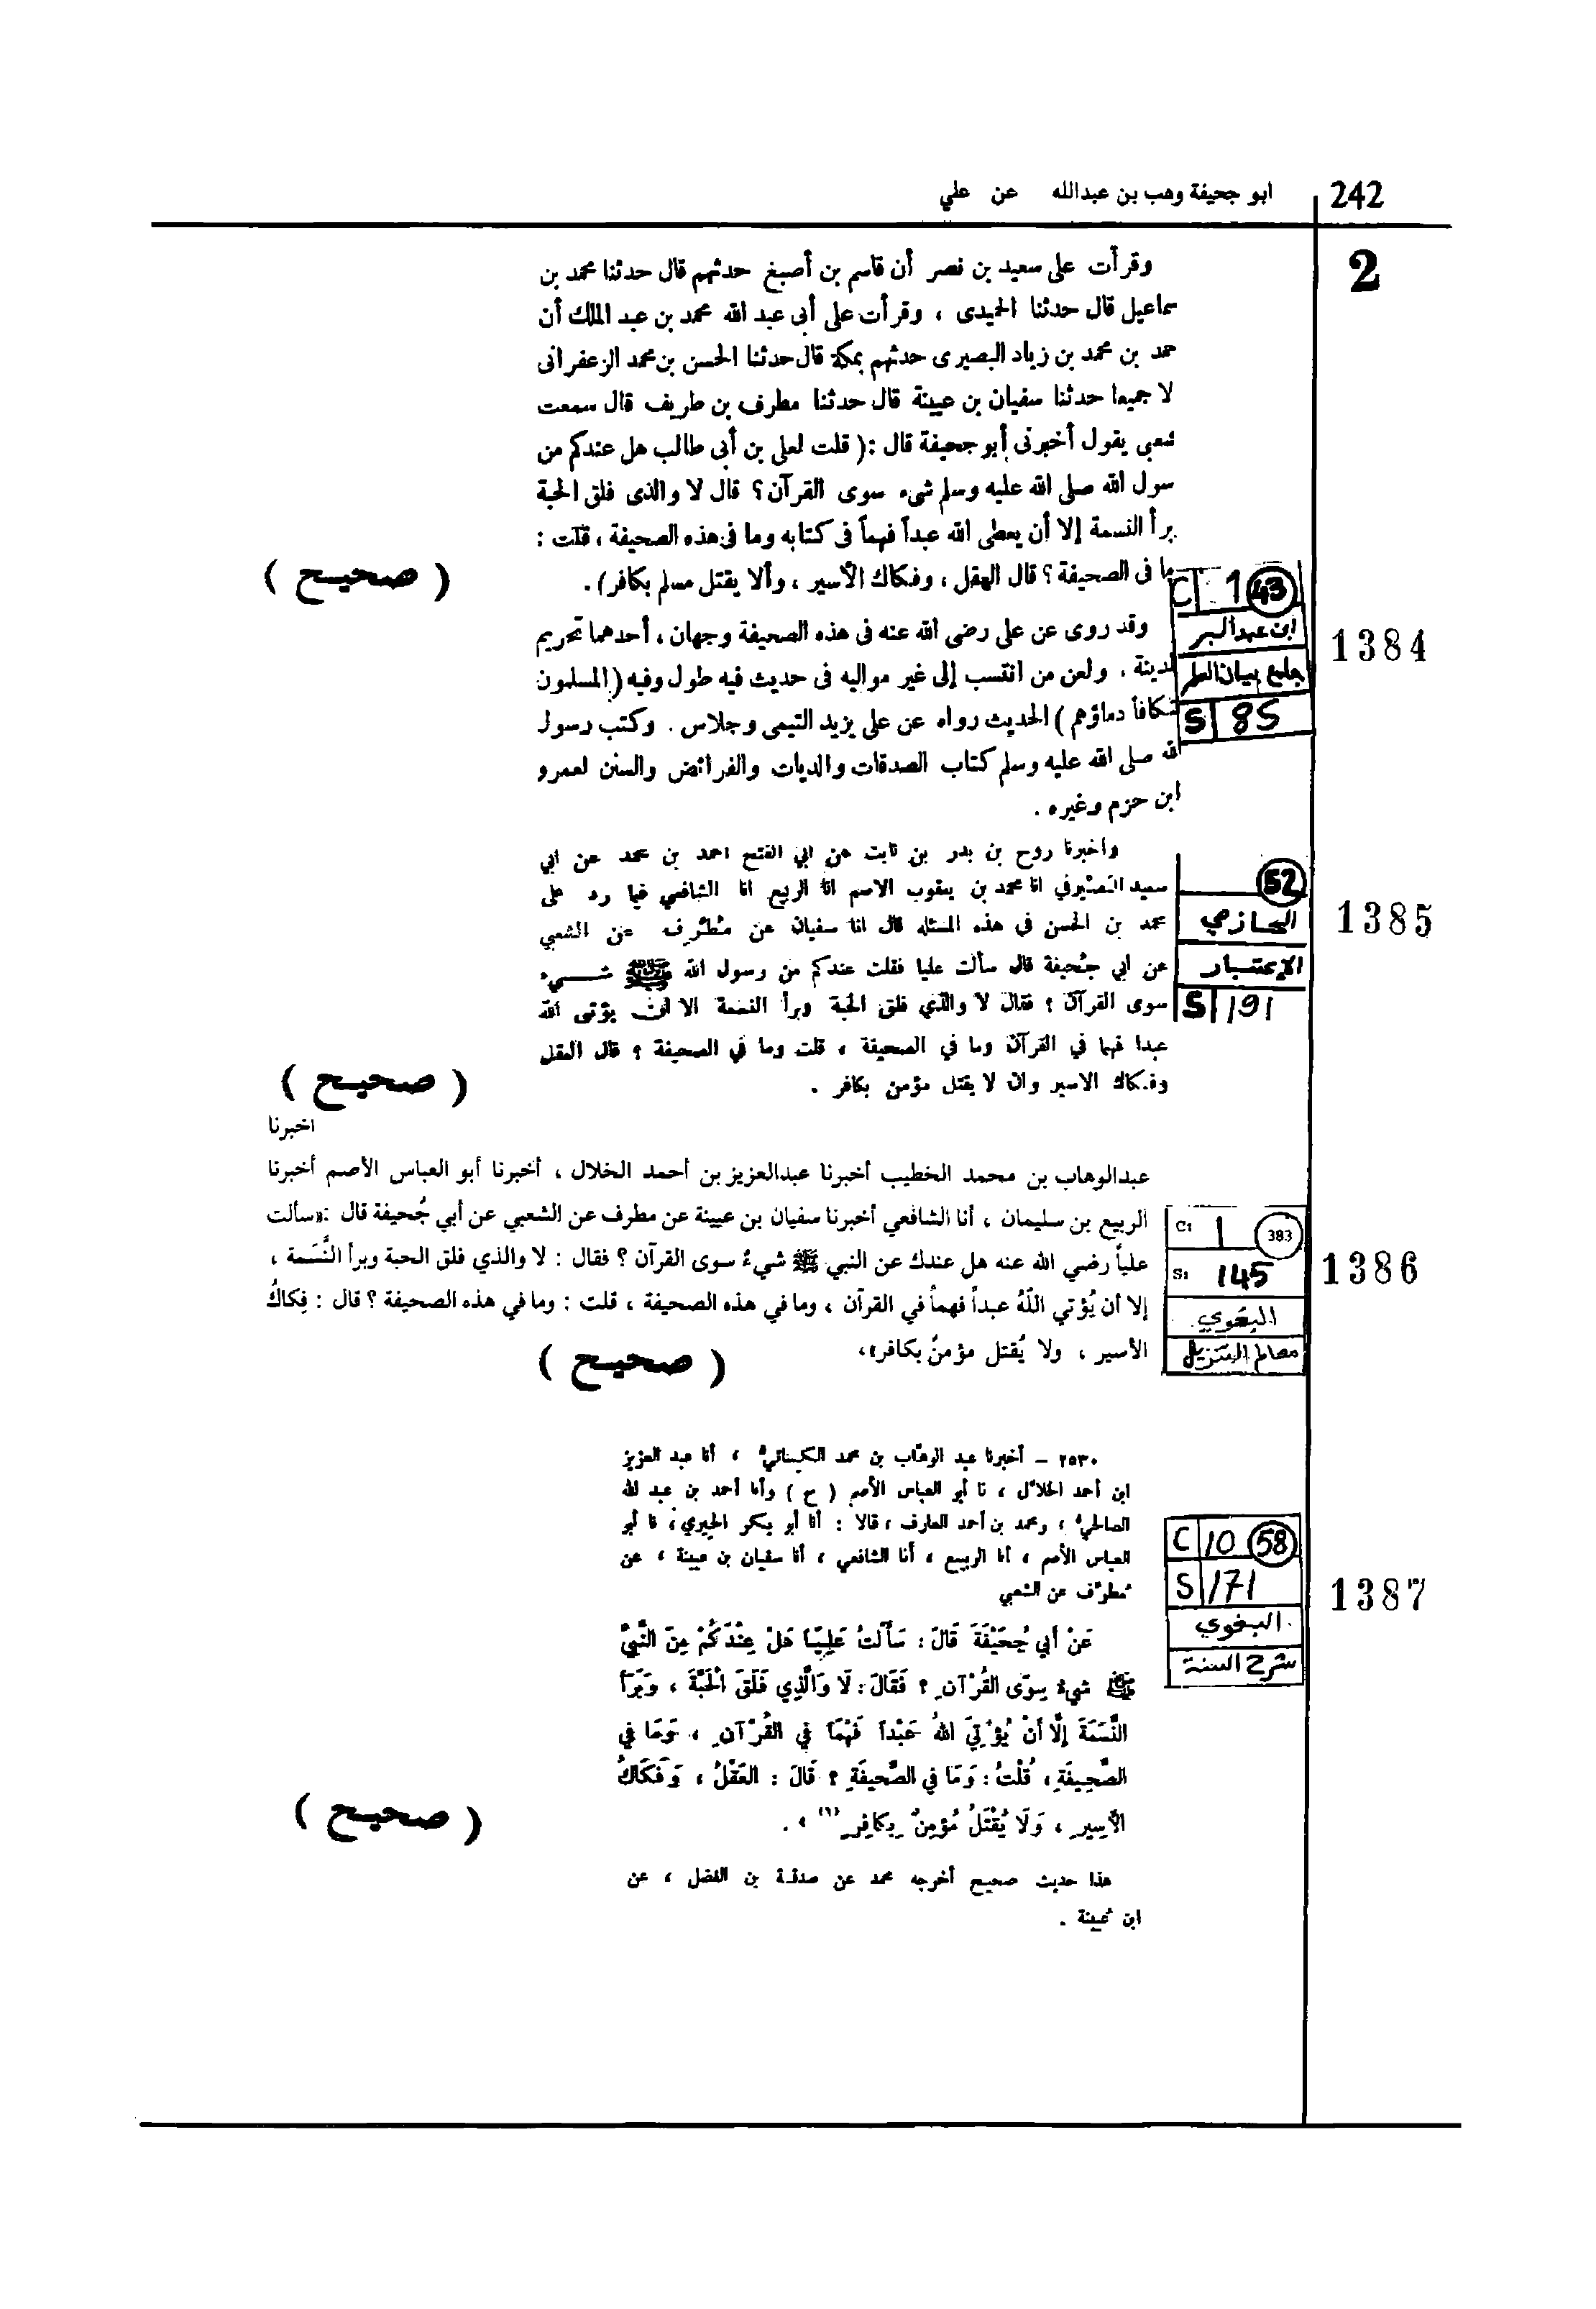 242
ابو جحيفة وهب بن عبدالله عن علي
2
وقرأت على سعيد بن نصر أن قاسم بن أصبغ حدثهم قال حدثنا محمد بن
سماعيل قال حدثنا الحميدى ، وقرأت على أبى عبد الله محمد بن عبد الملك أن
حمد بن محمد بن زياد البصيرى حدثهم بمكة قال حدثنا الحسن بن محمد الزعفرانى
لا جميعا حدثنا سفيان بن عيينة قال حدثنا مطرف بن طريف قال سمعت
شعبى يقول أخبرنى أبو جحيفة قال :( قلت لعلى بن أبى طالب هل عندكم من
سول الله صلى الله عليه وسلم شىء سوى القرآن؟ قال لا والذى فلق الحبة
برأ النسمة إلا أن يعطى الله عبداً فهماً فى كتابه وما فى هذه الصحيفة ، قلت :
ما فى الصحيفة ؟ قال العقل ، وفكاك الأسير ، وألا يقتل مسلم بكافر) .
( صحيح )
وقد روى عن على رضى الله عنه فى هذه الصحيفة وجهان ، أحدهما تحريم
لدينة . ولعن من انتسب إلى غير مواليه فى حديث فيه طول وفيه (المسلمون
تكافأ دماؤهم ) الحديث رواه عن على يزيد التيمى وجلاس . وكتب رسول
لله صلى الله عليه وسلم كتاب الصدقات والديات والفرائض والسنن لعمرو
ابن حزم وغيره .
C 1 43
ابن عبد البر
جامع بيان العلم
S 85
1384
واخبرنا روح بن بدر بن ثابت عن ابي الفتح احمد بن محمد عن ابي
سعيد الصيرفي انا محمد بن يعقوب الاصم انا الربيع انا الشافعي فيما رد على
محمد بن الحسن في هذه المسئلة قال انا سفيان عن مُطَرِّف عن الشعبي
عن ابي جُحيفة قال سألت عليا فقلت عندكم من رسول الله ﷺ شيء
سوى القرآن ؟ فقال لا والذي فلق الحبة وبرأ النسمة الا ان يؤتى الله
عبدا فهما في القرآن وما في الصحيفة ، قلت وما في الصحيفة ؟ قال العقل
وفكاك الاسير وان لا يقتل مؤمن بكافر .
( صحيح )
52
الحازمي
الإعتبار
S 191
1385
اخبرنا
عبدالوهاب بن محمد الخطيب أخبرنا عبدالعزيز بن أحمد الخلال ، أخبرنا أبو العباس الأصم أخبرنا
الربيع بن سليمان ، أنا الشافعي أخبرنا سفيان بن عيينة عن مطرف عن الشعبي عن أبي جُحيفة قال :«سألت
علياً رضي الله عنه هل عندك عن النبي ﷺ شيءٌ سوى القرآن ؟ فقال : لا والذي فلق الحبة وبرأ النَّسَمة ،
إلا أن يُؤتي اللَّهُ عبداً فهماً في القرآن ، وما في هذه الصحيفة ، قلت : وما في هذه الصحيفة ؟ قال : فِكاكُ
الأسير ، ولا يُقتل مؤمنٌ بكافر»،
( صحيح )
C: 1 383
S: 145
البغوي
معالم التنزيل
1386
٢٥٣٠ – أخبرنا عبد الوهّاب بن محمد الكسائيُّ ، أنا عبد العزيز
ابن أحمد الخلاّل ، نا أبو العباس الأصم ( ح ) وأنا أحمد بن عبد الله
الصالحيُّ ، ومحمد بن أحمد العارف ، قالا : أنا أبو بكر الحيري، نا أبو
العباس الأصم ، أنا الربيع ، أنا الشافعي ، أنا سفيان بن عيينة ، عن
مُطرِّف عن الشعبي
عَنْ أَبِي جُحَيْفَةَ قَالَ : سَأَلْتُ عَلِيَّاً هَلْ عِنْدَكُمْ مِنَ النَّبِيِّ
ﷺ شَيءٌ سِوَى القُرْآنِ ؟ فَقَالَ : لَا وَالَّذِي فَلَقَ الْحَبَّةَ ، وَبَرَأَ
النَّسَمَةَ إِلَّا أَنْ يُؤْتِيَ اللهُ عَبْداً فَهْمَاً فِي القُرْآنِ ، وَمَا فِي
الصَّحِيفَةِ ، قُلْتُ : وَمَا فِي الصَّحِيفَةِ ؟ قَالَ : العَقْلُ ، وَفَكَاكُ
الأَسِيرِ ، وَلَا يُقْتَلُ مُؤْمِنٌ بِكَافِرٍ (١) » .
( صحيح )
هذا حديث صحيح أخرجه محمد عن صدقة بن الفضل ، عن
ابن عُيينة .
C 10 58
S 171
البغوي
شرح السنة
1387